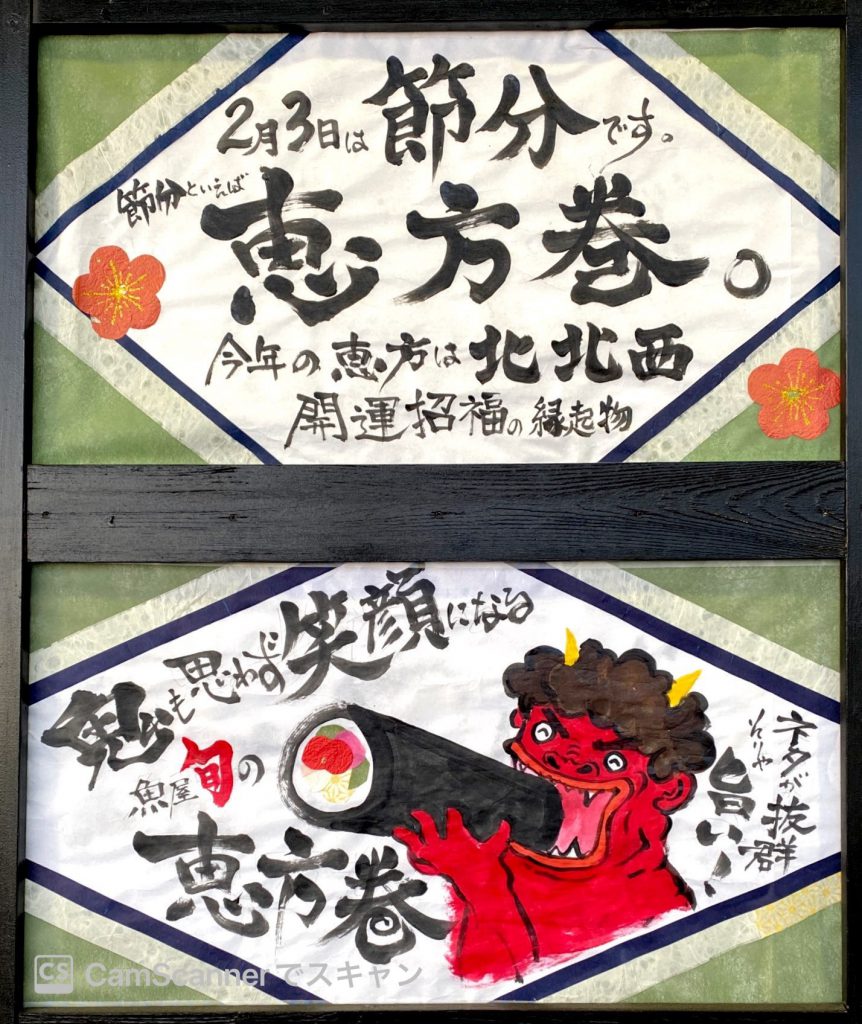 2月3日は節分です。
節分といえば
恵方巻。
今年の恵方は北北西
開運招福の縁起物
鬼も思わず笑顔になる
魚屋旬の
恵方巻
ネタが抜群
そりゃ旨い!
CS CamScannerでスキャン